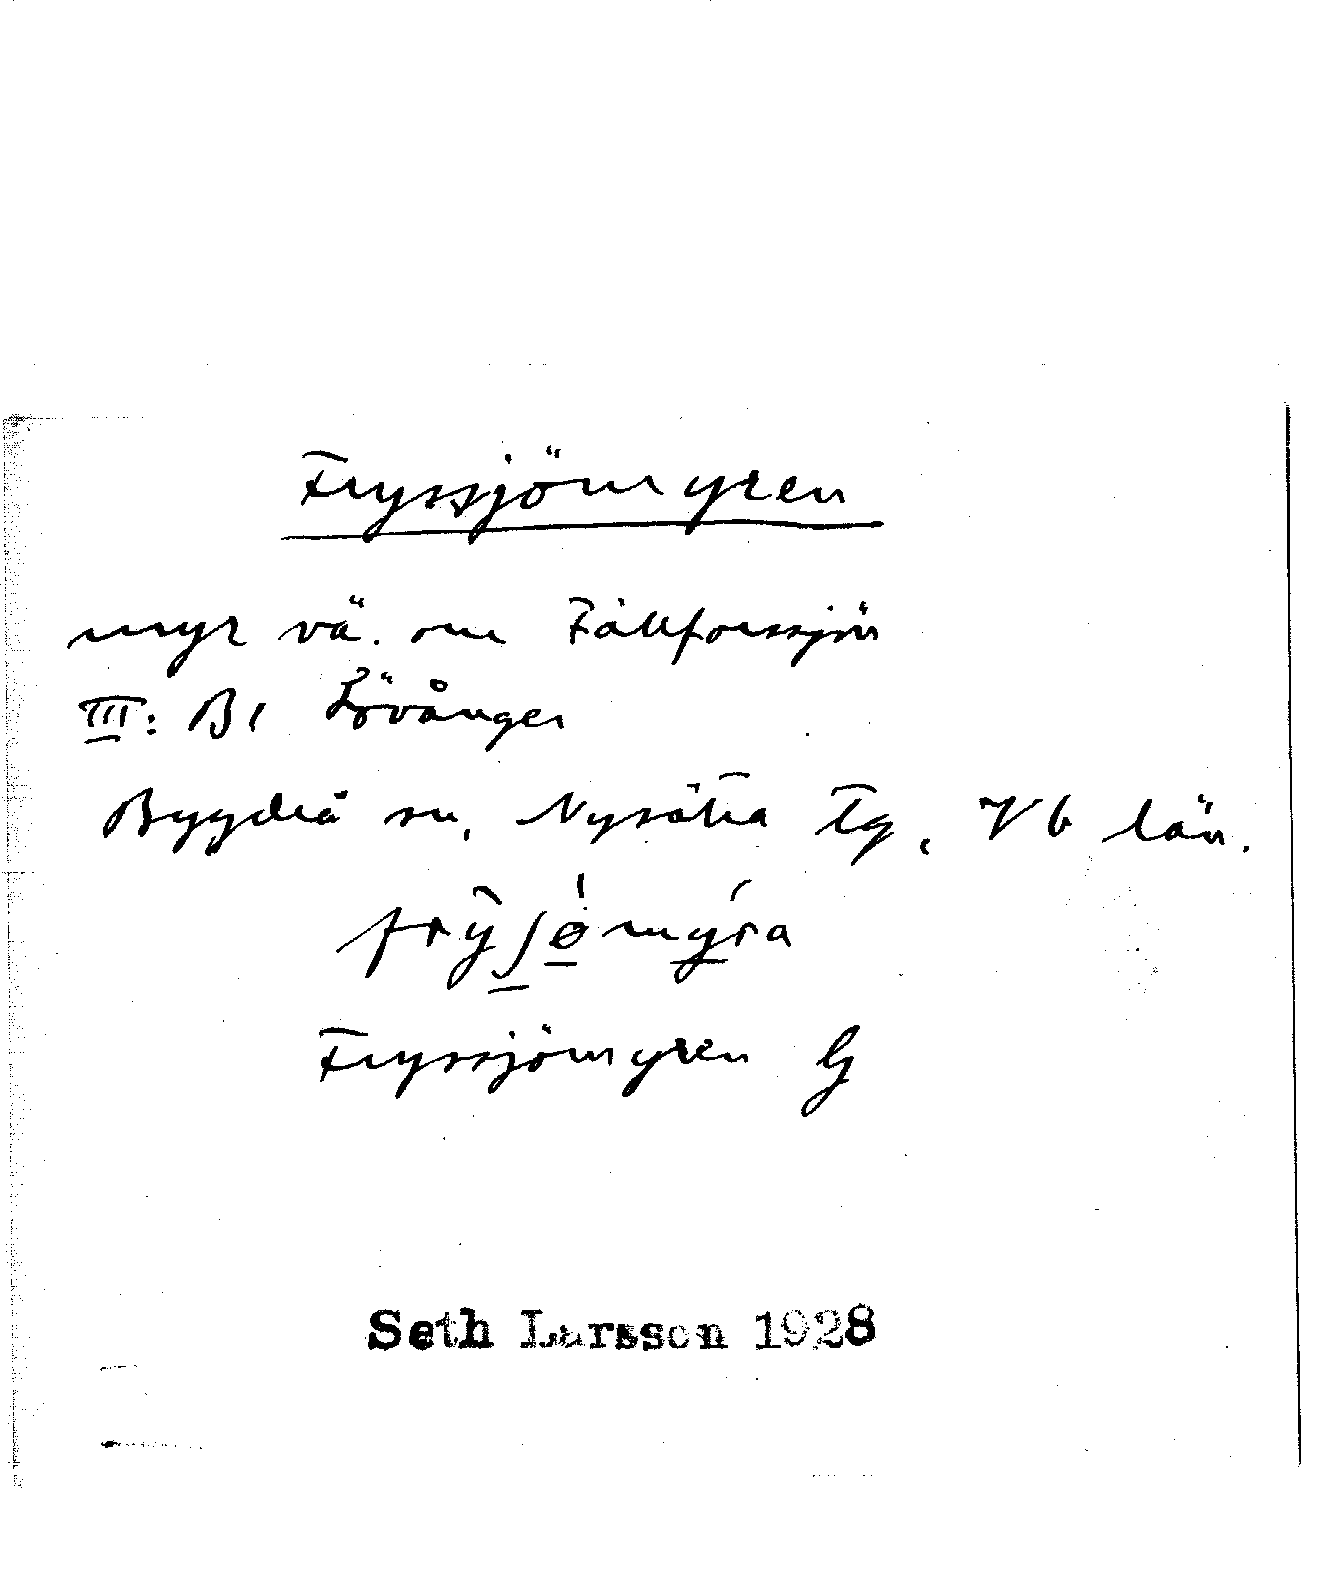 Fryssjömyren
myr vä. om Fällforssjön
III: B1 Lövånger
Bygdeå sn, Nysätra Tg, Vb län.
Fryssjömyren G
Seth Larsson 1928